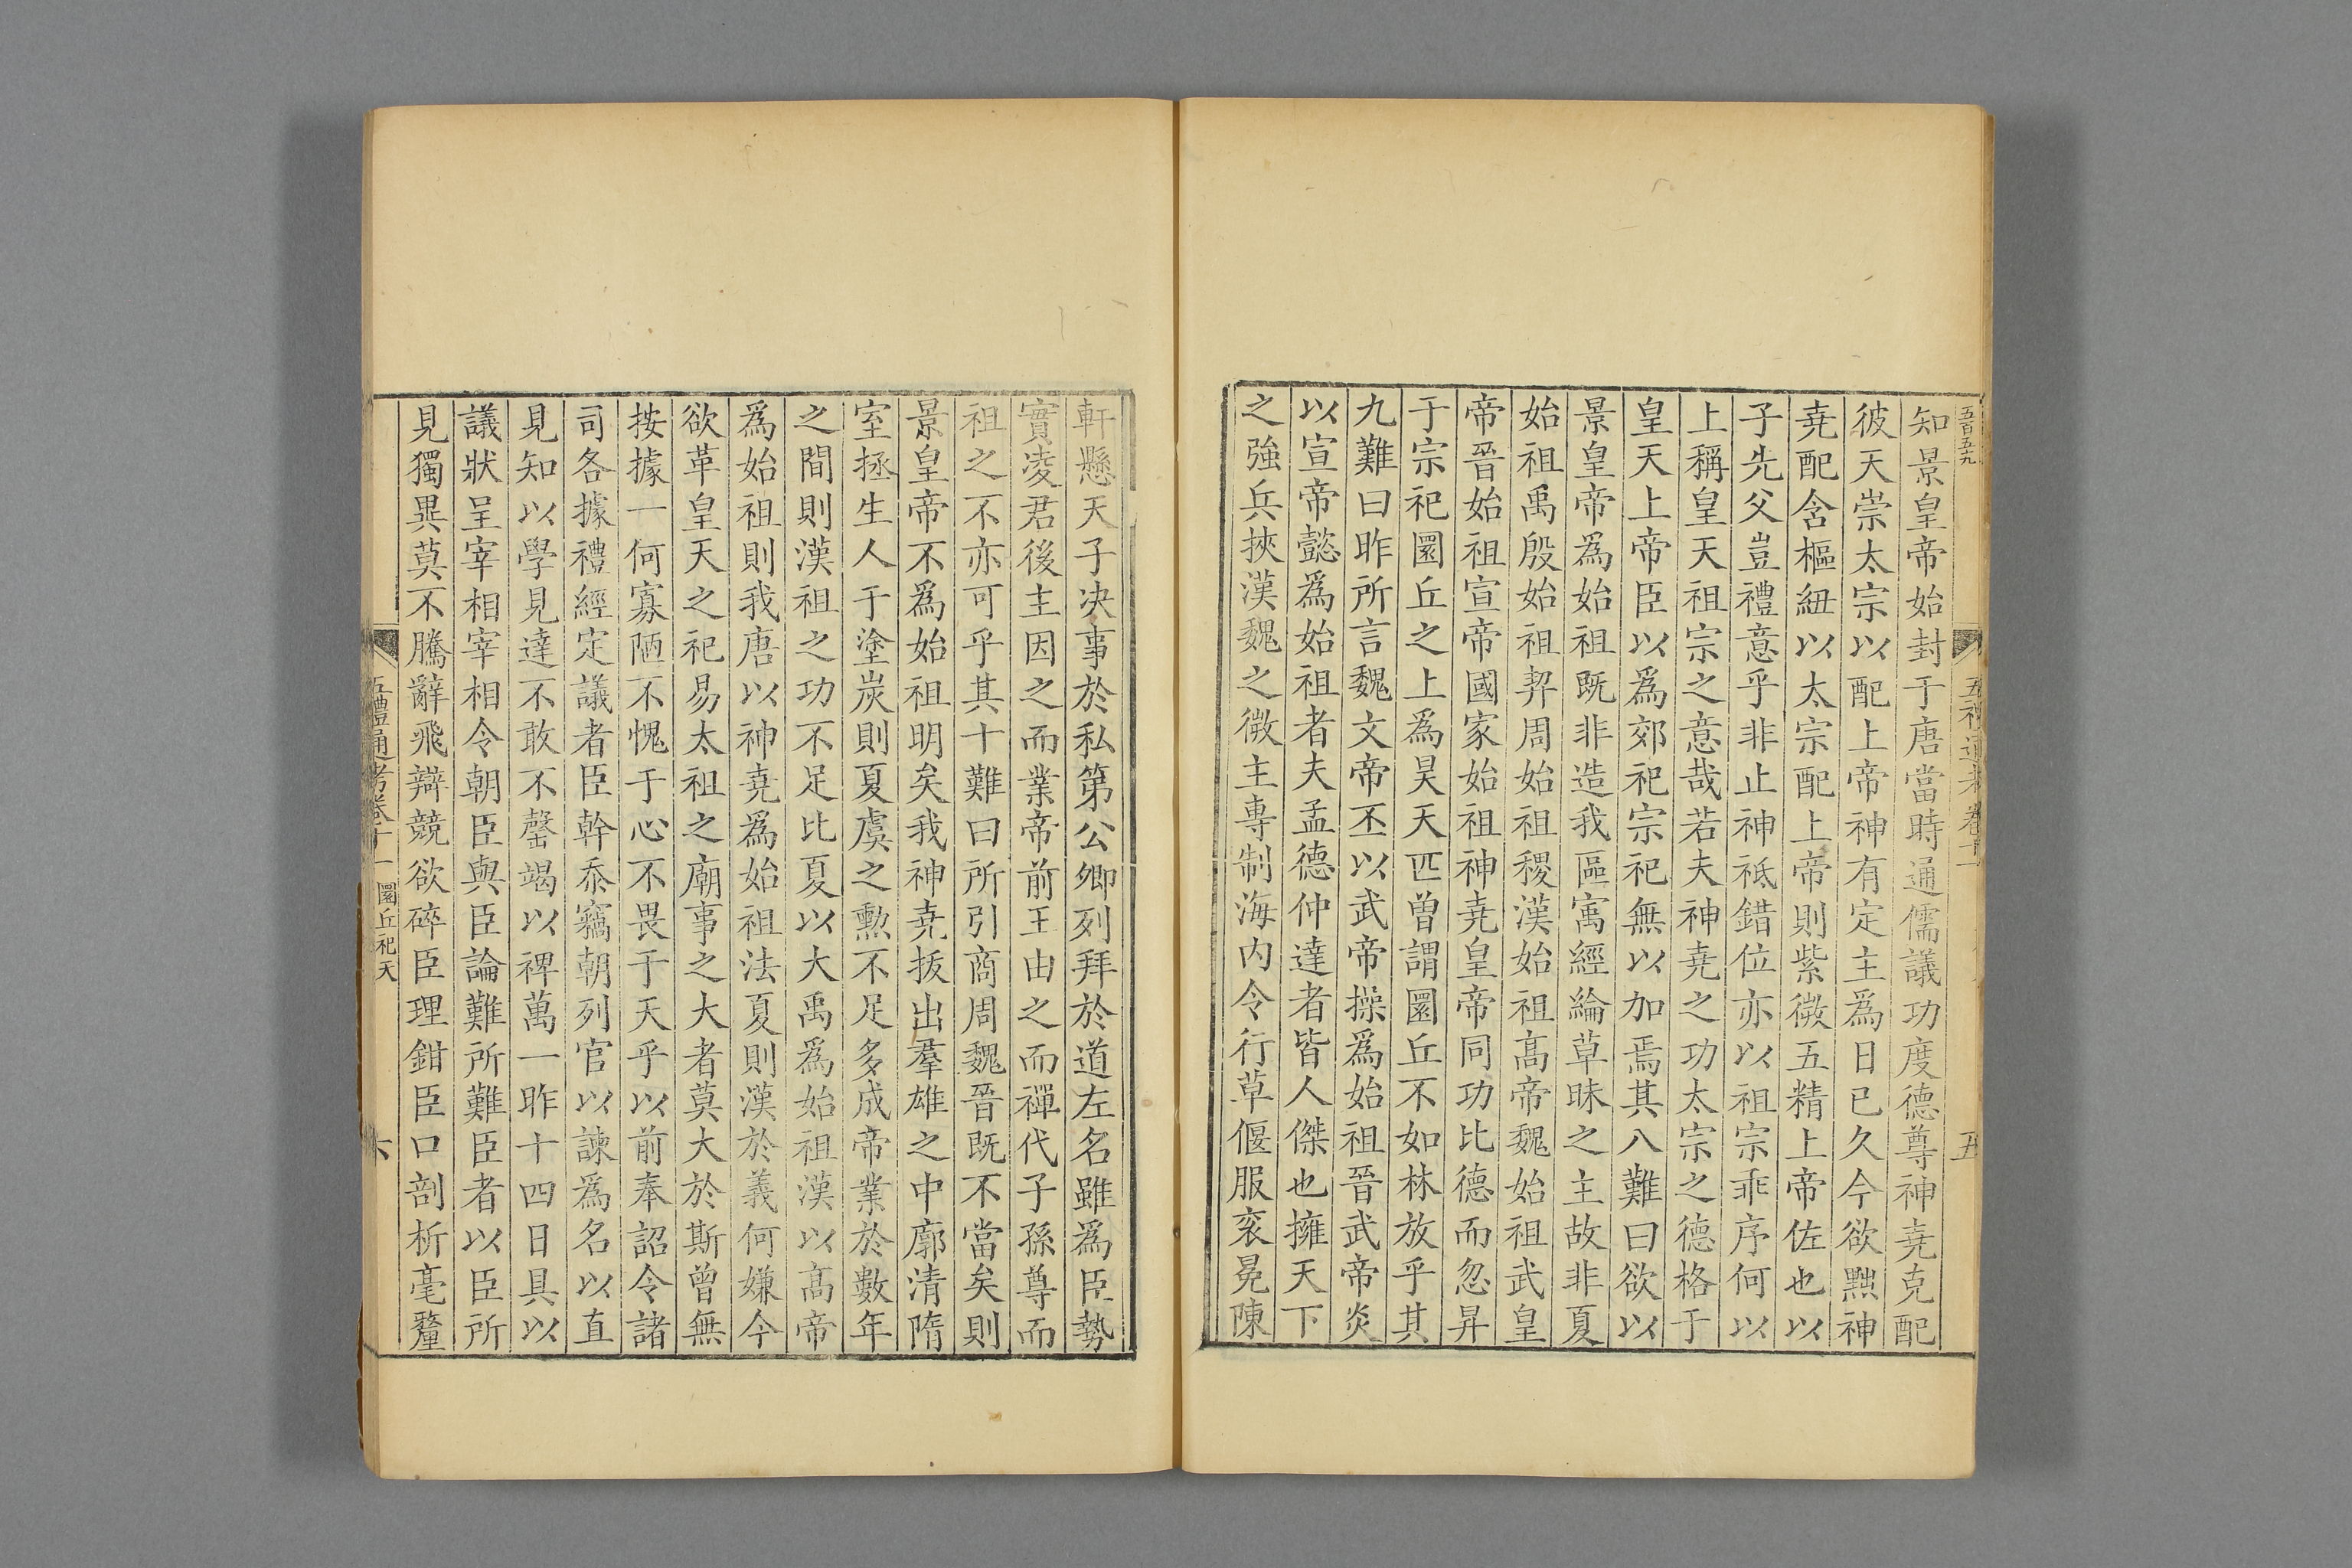 五百五九
五禮通考卷十一
五
知景皇帝始封于唐當時通儒議功度德尊神堯克配
彼天崇太宗以配上帝神有定主爲日已久今欲黜神
堯配含樞紐以太宗配上帝則紫微五精上帝佐也以
子先父豈禮意乎非止神祗錯位亦以祖宗乖序何以
上稱皇天祖宗之意哉若夫神堯之功太宗之德格于
皇天上帝臣以爲郊祀宗祀無以加焉其八難曰欲以
景皇帝爲始祖既非造我區寓經綸草昧之主故非夏
始祖禹殷始祖契周始祖稷漢始祖髙帝魏始祖武皇
帝晉始祖宣帝國家始祖神堯皇帝同功比德而忽昇
于宗祀圜丘之上爲昊天匹曽謂圜丘不如林放乎其
九難曰昨所言魏文帝丕以武帝操爲始祖晉武帝炎
以宣帝懿爲始祖者夫孟德仲達者皆人傑也擁天下
之強兵挾漢魏之微主專制海内令行草偃服衮冕陳
軒懸天子决事於私第公卿列拜於道左名雖爲臣勢
實凌君後主因之而業帝前王由之而禪代子孫尊而
祖之不亦可乎其十難曰所引商周魏晉既不當矣則
景皇帝不爲始祖明矣我神堯拔出羣雄之中廓清隋
室拯生人于塗炭則夏虞之勲不足多成帝業於數年
之間則漢祖之功不足比夏以大禹爲始祖漢以髙帝
爲始祖則我唐以神堯爲始祖法夏則漢於義何嫌今
欲革皇天之祀易太祖之廟事之大者莫大於斯曾無
按據一何寡陋不愧于心不畏于天乎以前奉詔令諸
司各據禮經定議者臣幹忝竊朝列官以諫爲名以直
見知以學見達不敢不罄竭以裨萬一昨十四日具以
議狀呈宰相宰相令朝臣與臣論難所難臣者以臣所
見獨異莫不騰辭飛辯競欲碎臣理鉗臣口剖析毫釐
五禮通考卷十一 圜丘祀天
六